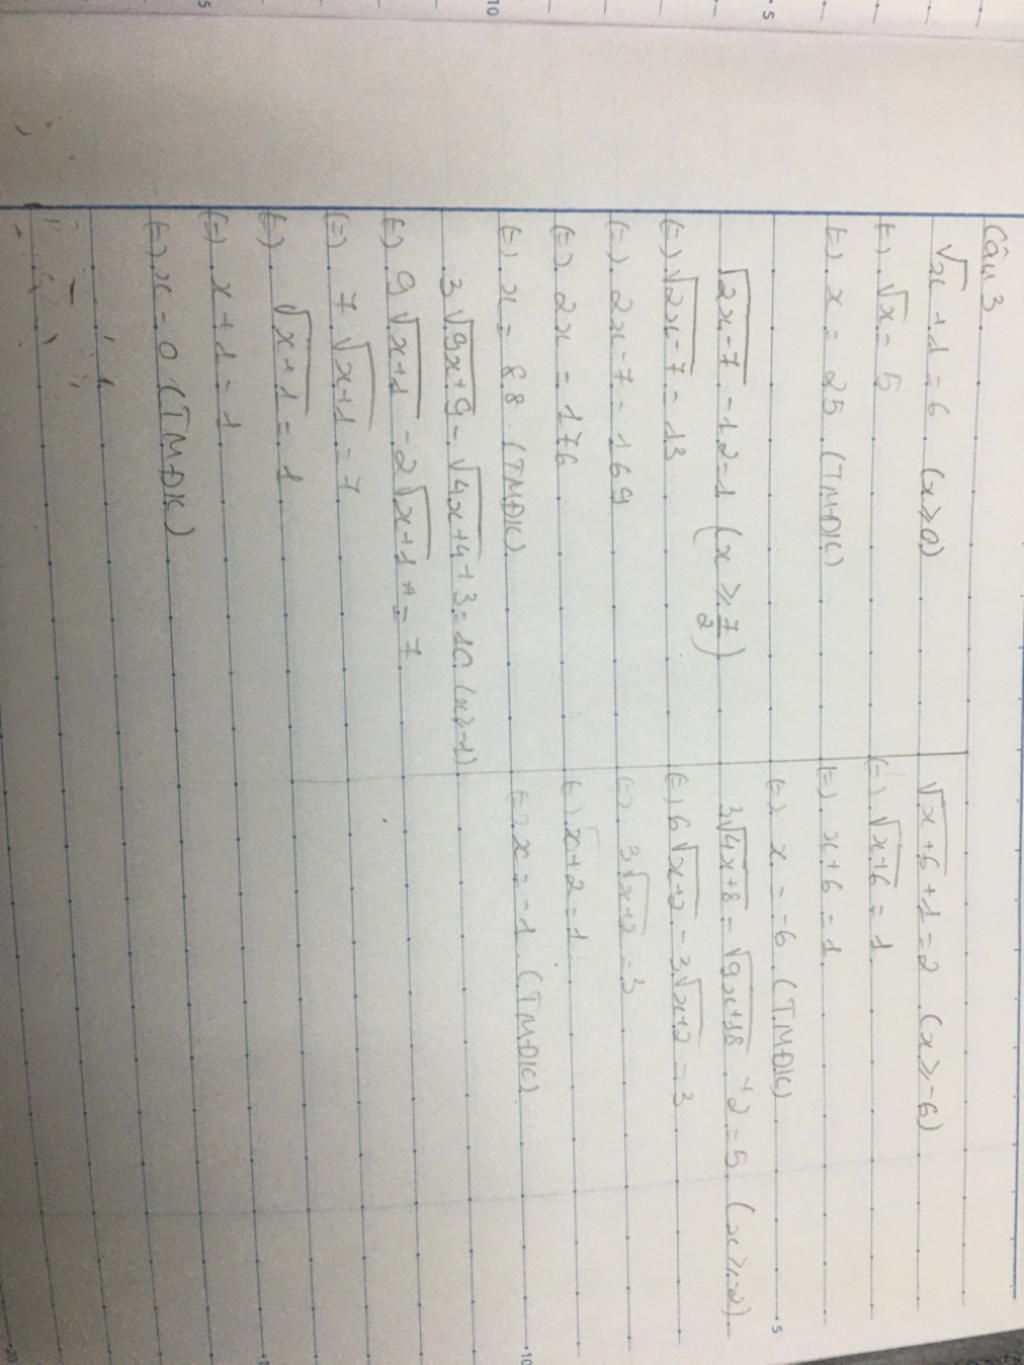 Câu 3
√x + 1 = 6 (x ≥ 0)
(=) √x = 5
(=) x = 25 (TMĐK)
√2x-7 - 12 = 1 (x ≥ 7/2)
(=) √2x-7 = 13
(=) 2x - 7 = 169
(=) 2x = 176
(=) x = 88 (TMĐK)
3√9x+9 - √4x+4 + 3 = 10 (x ≥ -1)
(=) 9√x+1 - 2√x+1 = 7
(=) 7√x+1 = 7
(=) √x+1 = 1
(=) x + 1 = 1
(=) x = 0 (TMĐK)
√x+6 + 1 = 2 (x ≥ -6)
(=) √x+6 = 1
(=) x + 6 = 1
(=) x = -6 (TMĐK)
3√4x+8 - √9x+18 + 2 = 5 (x ≥ -2)
(=) 6√x+2 - 3√x+2 = 3
(=) 3√x+2 = 3
(=) x + 2 = 1
(=) x = -1 (TMĐK)
5
10
5
5
10
20